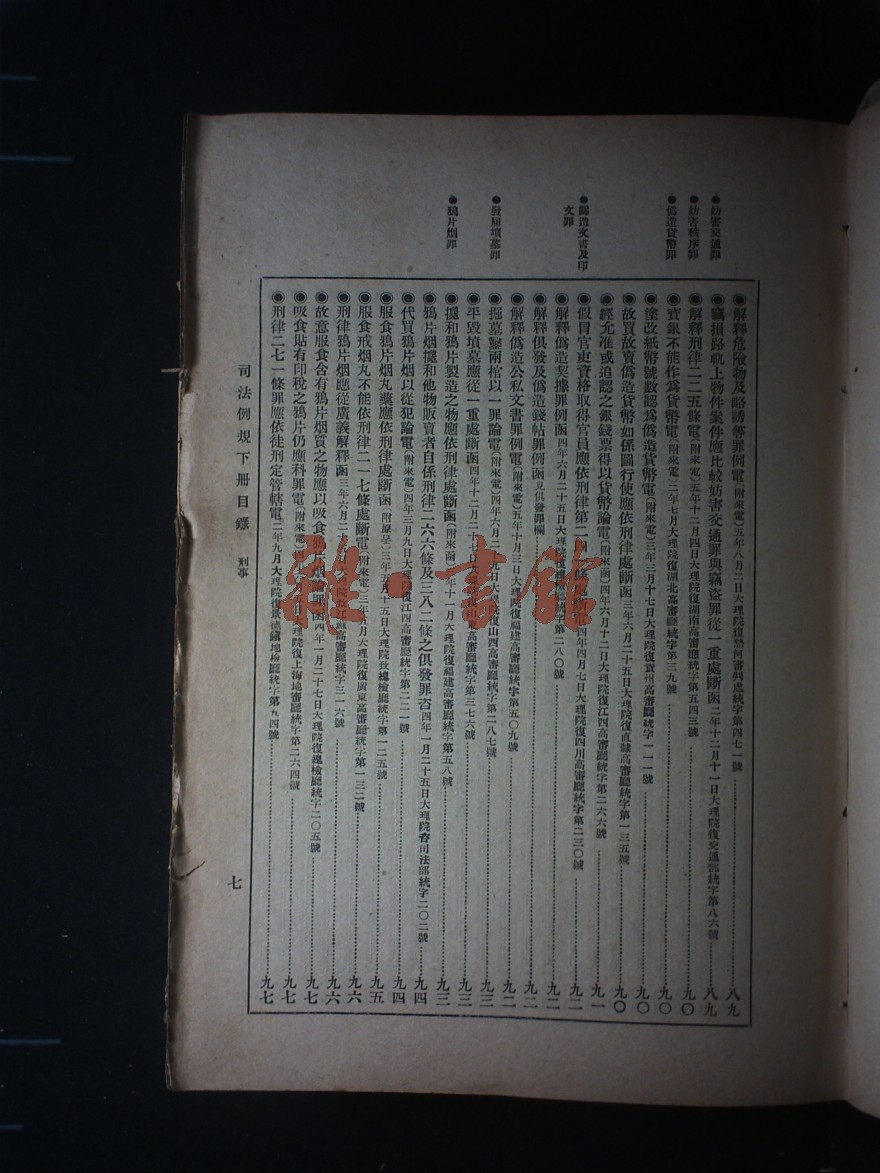 ●妨害交通罪
●妨害秩序罪
●僞造貨幣罪
●僞造文書及印文罪
●發屈墳墓罪
●鴉片烟罪
◉解釋危險物及略誘等罪例電(附來電)五年八月二日大理院復熱河審判處統字第四七一號 八九
◉竊損路軌上物件案件應比較妨害交通罪與竊盜罪從一重處斷函二年十二月十一日大理院復交通部統字第八六號 八九
◉解釋刑律二二五條電(附來電)五年十二月四日大理院復湖南高審廳統字第五四三號 九〇
◉寶銀不能作爲貨幣電(附來電)二年七月大理院復湖北高審廳統字第三九號 九〇
◉塗改紙幣號數認爲僞造貨幣電(附來電)三年三月十七日大理院復貴州高審廳統字一一一號 九〇
◉故買故賣僞造貨幣如係圖行使應依刑律處斷函三年六月二十五日大理院復直隸高審廳統字第一三五號 九〇
◉經允准或追認之銀錢票得以貨幣論電(附來函)四年六月十二日大理院復江西高審廳統字第二六六號 九一
◉假冒官吏資格取得官員應依刑律第二四條處斷電四年四月七日大理院復四川高審廳統字第二三〇號 九二
◉解釋僞造契據罪例函四年六月二十五日大理院復總檢廳統字第二八〇號 九二
◉解釋俱發及僞造錢帖罪例函見俱發罪欄 九二
◉解釋僞造公私文書罪例電(附來電)五年十月三日大理院復福建高審廳統字第五〇九號 九二
◉掘墓鑿兩棺以一罪論電(附來電)四年六月二九日大理院復山西高審廳統字第二八七號 九三
◉平毀墳墓應從一重處斷函四年十二月二十七日大理院復山東高審廳統字第三七六號 九三
◉攙和鴉片製造之物應依刑律處斷函(附來函)二年十一月大理院復福建高審廳統字第五八號 九三
◉鴉片烟攙和他物販賣者自係刑律二六六條及三八二條之俱發罪咨四年一月二十五日大理院咨司法部統字二〇二號 九四
◉代買鴉片烟以從犯論電(附來電)四年三月九日大理院復江西高審廳統字第二二一號 九四
◉服食鴉片烟丸藥應依刑律處斷函(附原呈)三年五月十五日大理院致總檢廳統字第一二五號 九五
◉服食戒烟丸不能依刑律二一七條處斷電(附來電)三年五月大理院復廣東高審廳統字第一三二號 九六
◉刑律鴉片烟應從廣義解釋函三年六月二日大理院致江蘇高審廳統字三一六號 九六
◉故意服食含有鴉片烟質之物應以吸食鴉片烟論罪函四年一月二十七日大理院復總檢廳統字二〇五號 九七
◉吸食貼有印稅之鴉片仍應科罪電(附來電)五日大理院復上海地審廳統字第二六四號 九七
◉刑律二七一條罪應依徒刑定管轄電二年九月大理院復景德鎮地檢廳統字第五四號 九七
司法例規下册目錄 刑事
七
雅·書館